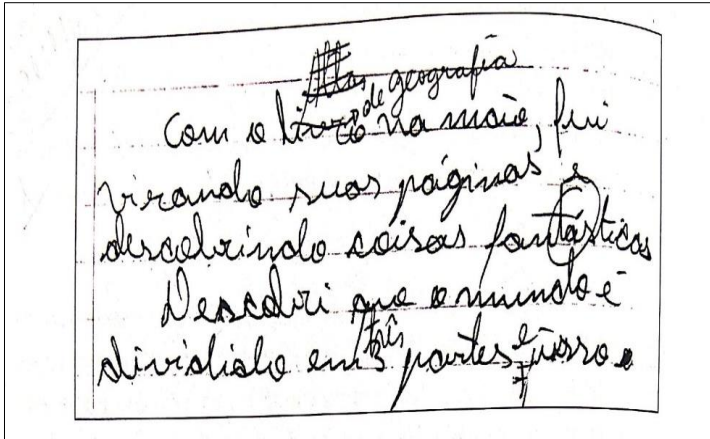 Atlas de geografia
Com o livro na mão, fui
virando suas páginas e
descobrindo coisas fantásticas
Descobri que o mundo é
três
dividido em 3 partes e